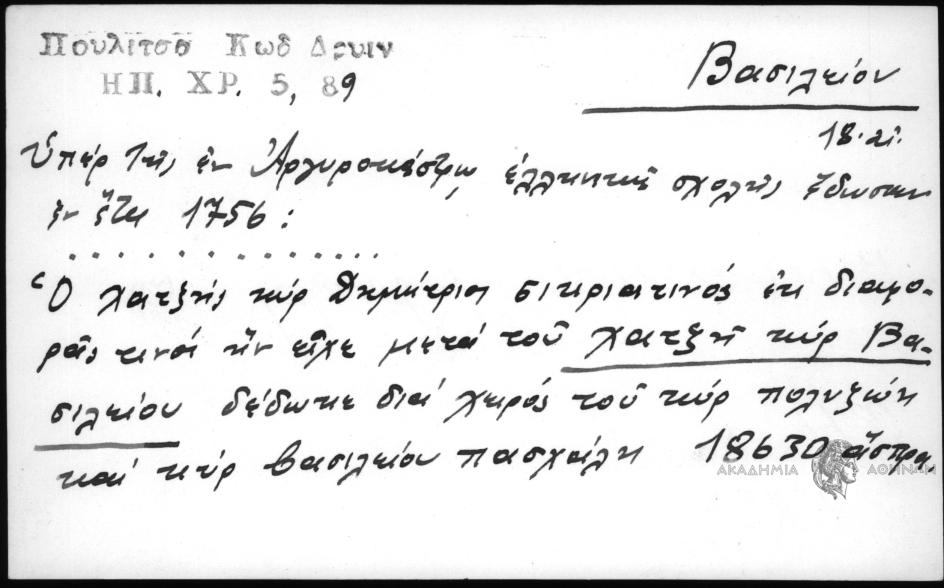 Πουλίτσα Κωδ Δρυιν
ΗΠ. ΧΡ. 5, 89
Βασιλείου
18. αἰ.
Ὑπέρ τῆς ἐν Ἀργυροκάστρῳ ἑλληνικῆς σχολῆς ἔδωσαν
ἐν ἔτει 1756:
Ὁ χατζῆς κύρ Δημήτριος σικριατινός ἐκ διαφο-
ρᾶς τινός ἥν εἶχε μετά τοῦ χατζῆ κύρ Βα-
σιλείου δέδωκε διά χειρός τοῦ κύρ πολυζώη
καί κύρ βασιλείου πασχάλη 18630 ἄσπρα
ΑΚΑΔΗΜΙΑ ΑΘΗΝΩΝ